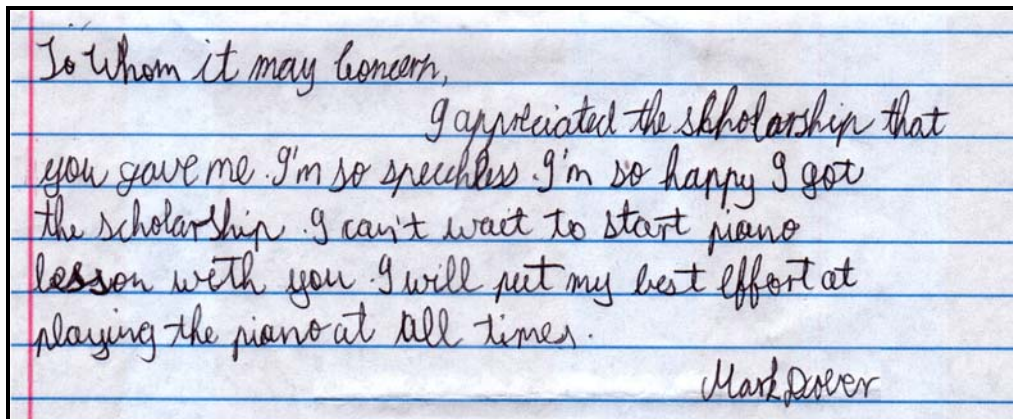 To Whom it may Concern,
I appreciated the skholarship that
you gave me. I'm so speechless. I'm so happy I got
the scholarship. I can't wait to start piano
lesson with you. I will put my best effort at
playing the piano at all times.
Mark